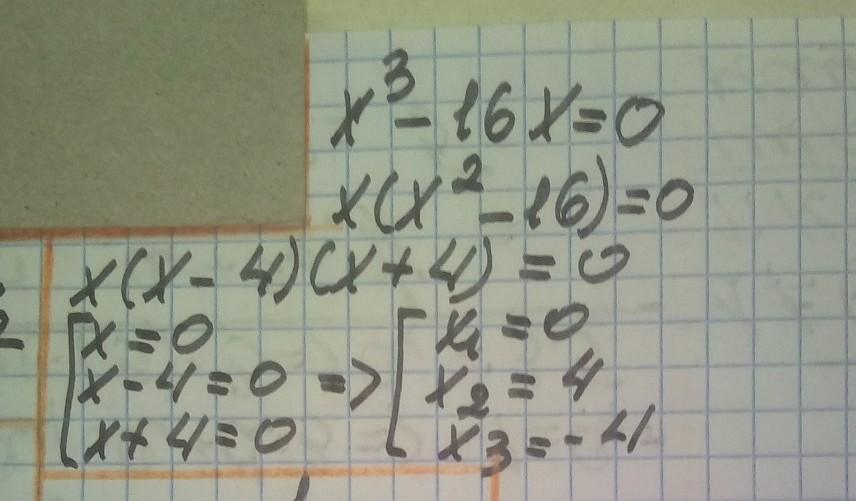 x³ - 16x = 0
x(x² - 16) = 0
x(x - 4)(x + 4) = 0
[x = 0 [x₁ = 0
x - 4 = 0 => x₂ = 4
x + 4 = 0 x₃ = -4